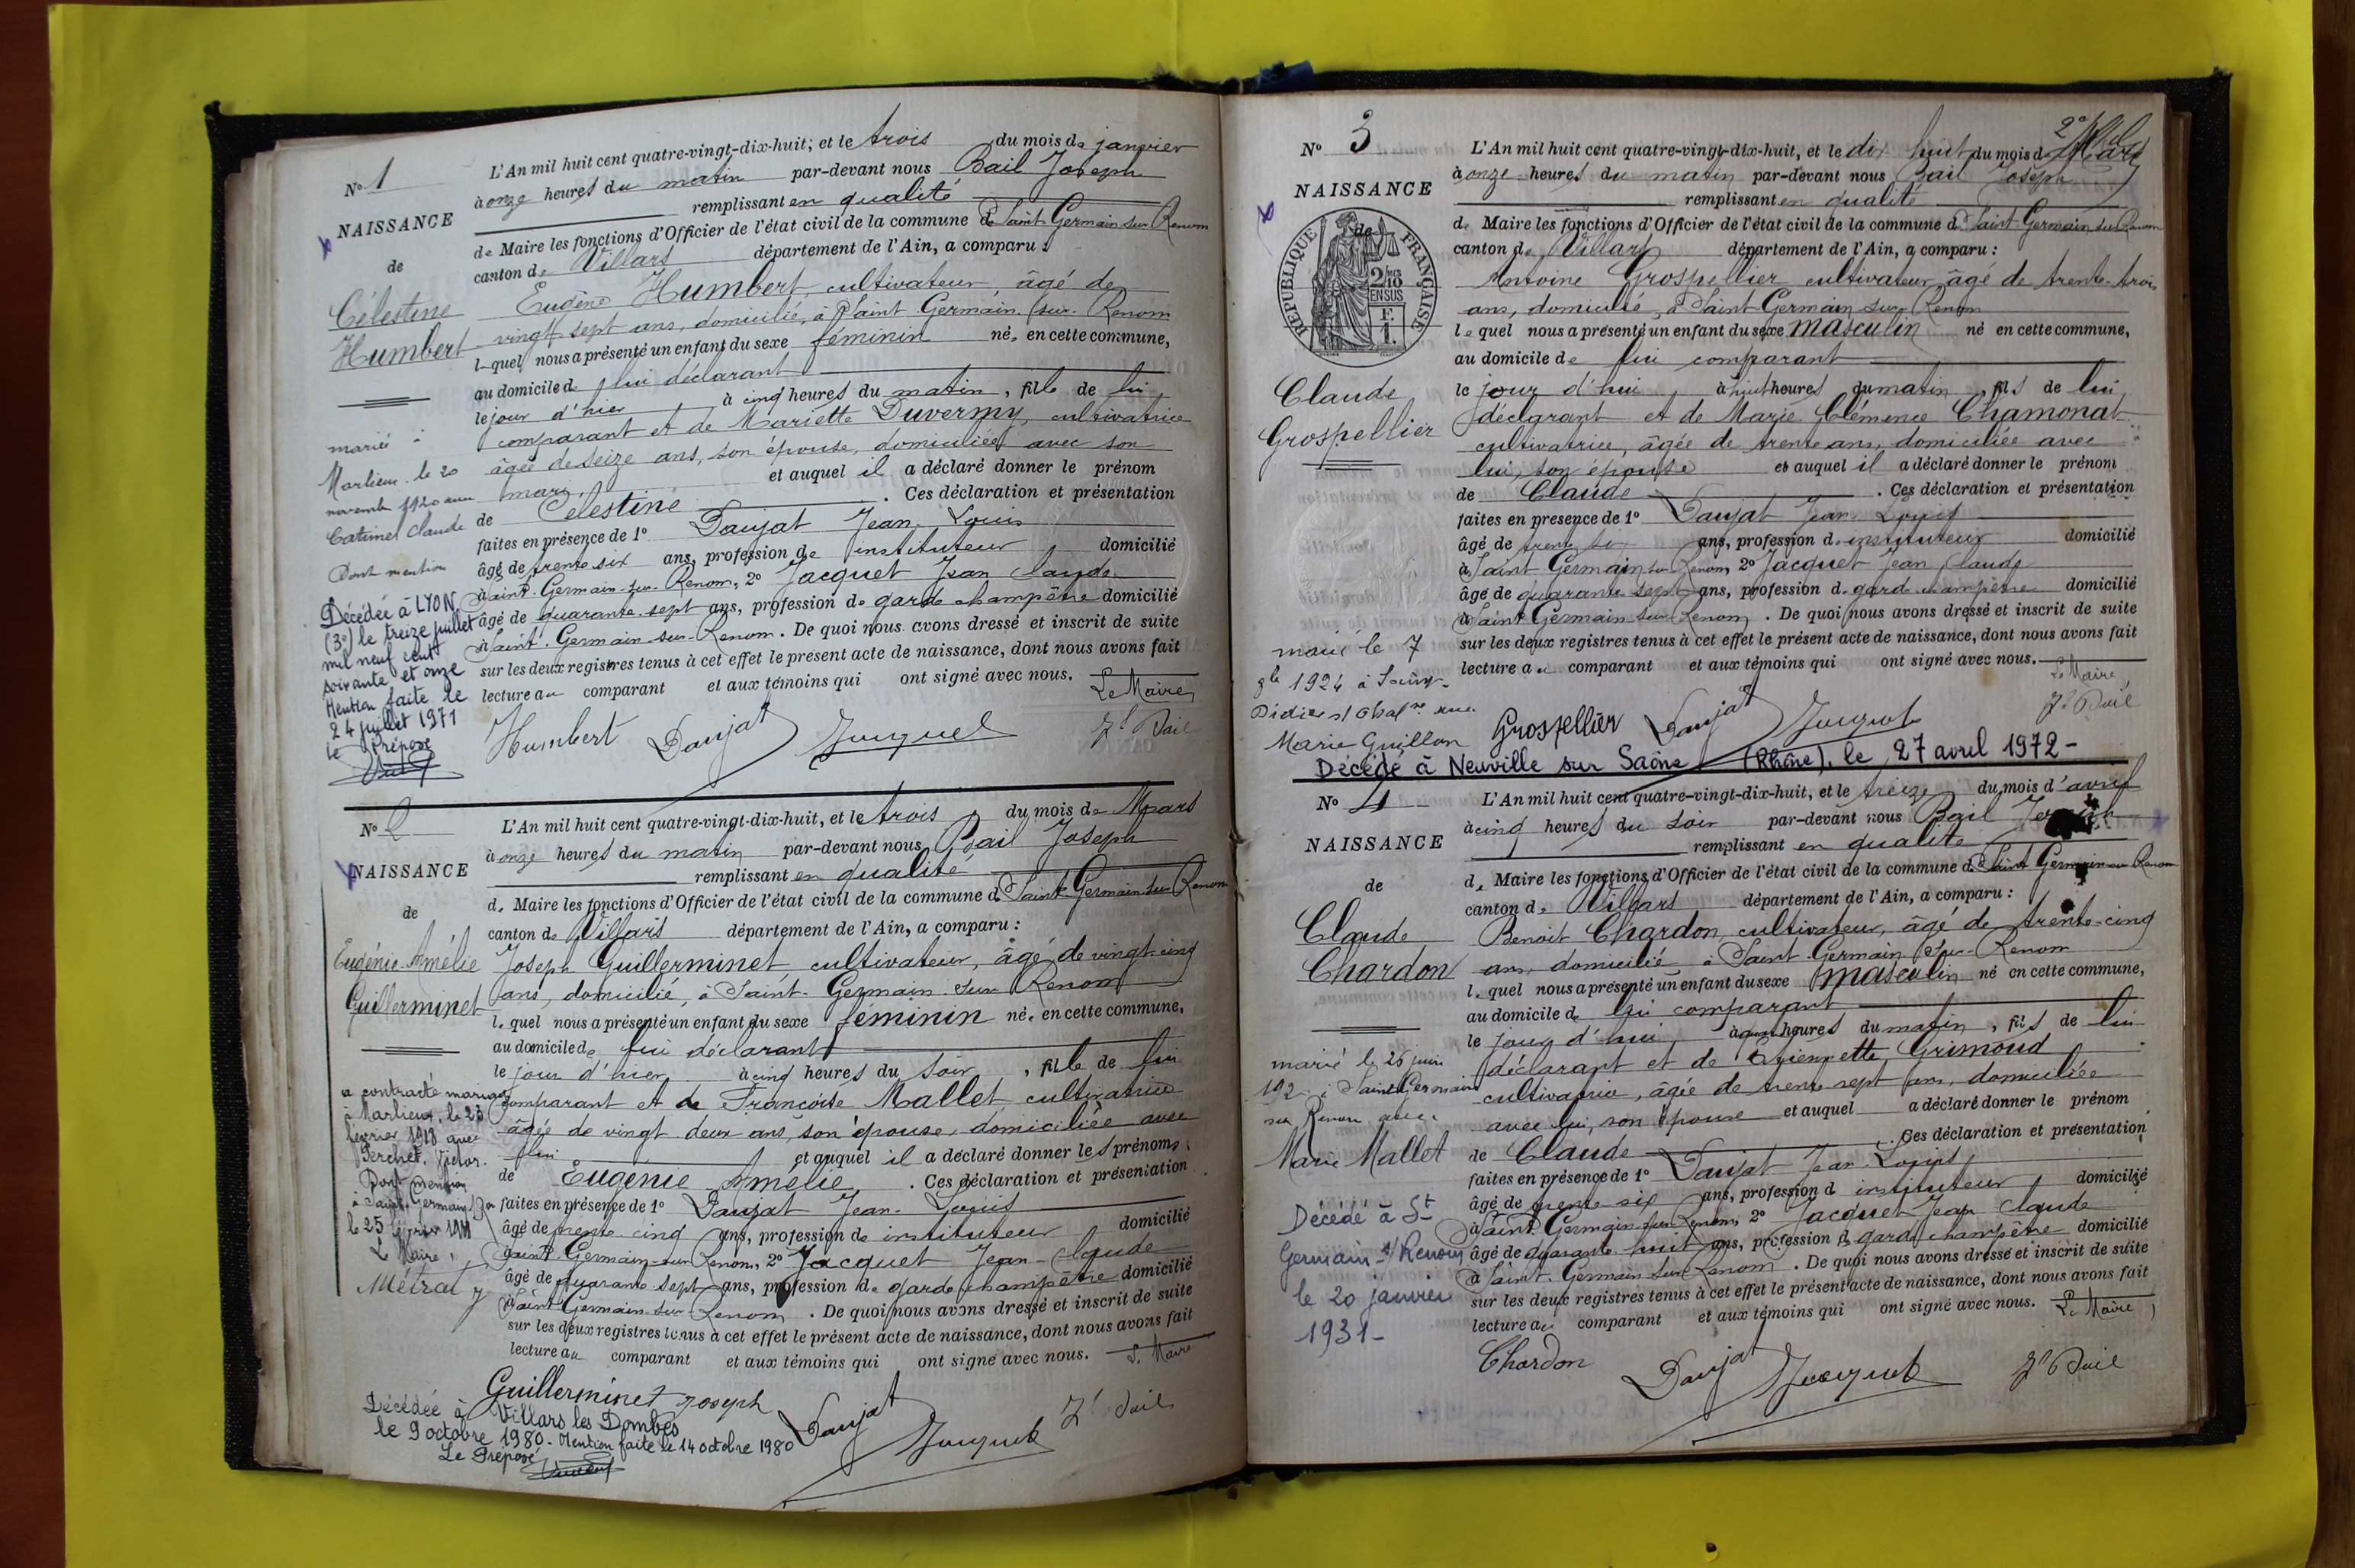 N° 1
NAISSANCE
de
Célestine
Humbert
marié à
Marlieux le 20
novembre 1920 avec
Catimel Claude
Dont mention
Décédée à LYON
(3e) le treize juillet
mil neuf cent
soixante et onze
Mention faite le
24 juillet 1971
le Préposé
L'An mil huit cent quatre-vingt-dix-huit, et le trois du mois de janvier
à onze heures du matin par-devant nous Bail Joseph
remplissant en qualité
de Maire les fonctions d'Officier de l'état civil de la commune de Saint Germain sur Renom
canton de Villars département de l'Ain, a comparu :
Eugène Humbert cultivateur, âgé de
vingt sept ans, domicilié, à Saint Germain sur Renom
lequel nous a présenté un enfant du sexe féminin née en cette commune,
au domicile de lui déclarant
le jour d'hier à cinq heures du matin, fille de lui
comparant et de Mariette Duvermy, cultivatrice
âgée de seize ans, son épouse, domiciliée avec son
mari, et auquel il a déclaré donner le prénom
de Célestine . Ces déclaration et présentation
faites en présence de 1° Daujat Jean Louis
âgé de trente six ans, profession de instituteur domicilié
à Saint Germain-sur-Renom, 2° Jacquet Jean Claude
âgé de quarante sept ans, profession de garde champêtre domicilié
à Saint Germain-sur-Renom. De quoi nous avons dressé et inscrit de suite
sur les deux registres tenus à cet effet le présent acte de naissance, dont nous avons fait
lecture au comparant et aux témoins qui ont signé avec nous.
Le Maire,
Humbert Daujat Jacquet Jh Bail
N° 2
NAISSANCE
de
Eugénie Amélie
Guillerminet
a contracté mariage
à Marlieux, le 23
février 1918 avec
Perchet, Victor.
Dont mention
à Saint Germain s/Ren
le 25 février 1918
Le Maire,
Métral
L'An mil huit cent quatre-vingt-dix-huit, et le trois du mois de Mars
à onze heures du matin par-devant nous Bail Joseph
remplissant en qualité
de Maire les fonctions d'Officier de l'état civil de la commune de Saint Germain sur Renom
canton de Villars département de l'Ain, a comparu :
Joseph Guillerminet cultivateur, âgé de vingt-cinq
ans, domicilié, à Saint-Germain-sur Renom
lequel nous a présenté un enfant du sexe féminin née en cette commune,
au domicile de lui déclarant
le jour d'hier à cinq heures du soir, fille de lui
comparant et de Françoise Mallet cultivatrice
âgée de vingt deux ans, son épouse, domiciliée avec
lui et auquel il a déclaré donner les prénoms
de Eugénie Amélie . Ces déclaration et présentation
faites en présence de 1° Daujat Jean-Louis
âgé de trente cinq ans, profession de instituteur domicilié
à Saint Germain-sur-Renom, 2° Jacquet Jean-Claude
âgé de quarante sept ans, profession de garde champêtre domicilié
à Saint Germain-sur-Renom. De quoi nous avons dressé et inscrit de suite
sur les deux registres tenus à cet effet le présent acte de naissance, dont nous avons fait
lecture au comparant et aux témoins qui ont signé avec nous.
Le Maire
Guillerminet Joseph Daujat Jacquet Jh Bail
Décédée à Villars les Dombes
le 9 octobre 1980 - Mention faite le 14 octobre 1980
Le Préposé
N° 3
NAISSANCE
de
RÉPUBLIQUE FRANÇAISE
2/10 EN SUS
Claude
Grospellier
marié le 7
9bre 1924 à Saint-
Didier s/ Chalne avec
Marie Guillon
L'An mil huit cent quatre-vingt-dix-huit, et le dix huit du mois de Mars
à onze heures du matin par-devant nous Bail Joseph
remplissant en qualité
de Maire les fonctions d'Officier de l'état civil de la commune de Saint Germain sur Renom
canton de Villars département de l'Ain, a comparu :
Antoine Grospellier cultivateur âgé de trente-trois
ans, domicilié, à Saint-Germain sur Renom
lequel nous a présenté un enfant du sexe masculin né en cette commune,
au domicile de lui comparant
le jour d'hui à huit heures du matin, fils de lui
déclarant et de Marie Clémence Chamonat
cultivatrice, âgée de trente ans, domiciliée avec
lui, son épouse et auquel il a déclaré donner le prénom
de Claude . Ces déclaration et présentation
faites en présence de 1° Daujat Jean Louis
âgé de trente six ans, profession d. instituteur domicilié
à Saint Germain sur Renom, 2° Jacquet Jean Claude
âgé de quarante sept ans, profession de garde champêtre domicilié
à Saint Germain-sur-Renom . De quoi nous avons dressé et inscrit de suite
sur les deux registres tenus à cet effet le présent acte de naissance, dont nous avons fait
lecture au comparant et aux témoins qui ont signé avec nous.
Le Maire,
Grospellier Daujat Jacquet Jh Bail
Décédé à Neuville sur Saône (Rhône), le 27 avril 1972-
N° 4
NAISSANCE
de
Claude
Chardon
marié le 26 juin
192 à Saint Germain
sur Renom avec
Marie Mallet
Décédé à St
Germain s/ Renom
le 20 janvier
1931-
L'An mil huit cent quatre-vingt-dix-huit, et le treize du mois d'avril
à cinq heures du soir par-devant nous Bail Joseph
remplissant en qualité
de Maire les fonctions d'Officier de l'état civil de la commune de Saint Germain sur Renom
canton de Villars département de l'Ain, a comparu :
Benoit Chardon, cultivateur, âgé de trente-cinq
ans, domicilié à Saint-Germain sur Renom
lequel nous a présenté un enfant du sexe masculin né en cette commune,
au domicile de lui comparant
le jour d'hui à heures du matin, fils de lui
déclarant et de Etiennette Grimoud
cultivatrice, âgée de trente sept ans, domiciliée
avec lui, son épouse et auquel a déclaré donner le prénom
de Claude . Ces déclaration et présentation
faites en présence de 1° Daujat Jean Louis
âgé de trente six ans, profession d instituteur domicilié
à Saint Germain-sur Renom, 2° Jacquet Jean Claude
âgé de quarante-huit ans, profession de garde champêtre domicilié
à Saint-Germain sur Renom . De quoi nous avons dressé et inscrit de suite
sur les deux registres tenus à cet effet le présent acte de naissance, dont nous avons fait
lecture au comparant et aux témoins qui ont signé avec nous.
Le Maire,
Chardon Daujat Jacquet Jh Bail